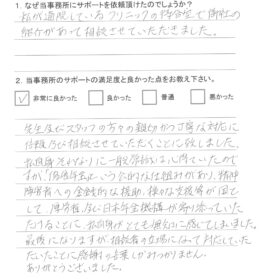 1. なぜ当事務所にサポートを依頼頂けたのでしょうか？
私が通院しているクリニックの待合室で御社の
紹介があって相談させていただきました。
2. 当事務所のサポートの満足度と良かった点をお教え下さい。
✓ 非常に良かった □ 良かった □ 普通 □ 悪かった
先生及びスタッフの方々の親切かつ丁寧な対応に
信頼及び相談させていただくことに致しました。
私自身それなりに一般常識は心得ていたので
すが「障害年金」という公的な仕組みがあり、精神
障害者への金銭的な援助、様々な支援者が国と
して 厚労省及び日本年金機構が寄り添っていた
だけることに、私自身がとても感動に感じてしまいました。
最後になりますが、相談者の立場になって対応していた
だいたことに感謝の言葉しかみつかりません。
ありがとうございました。